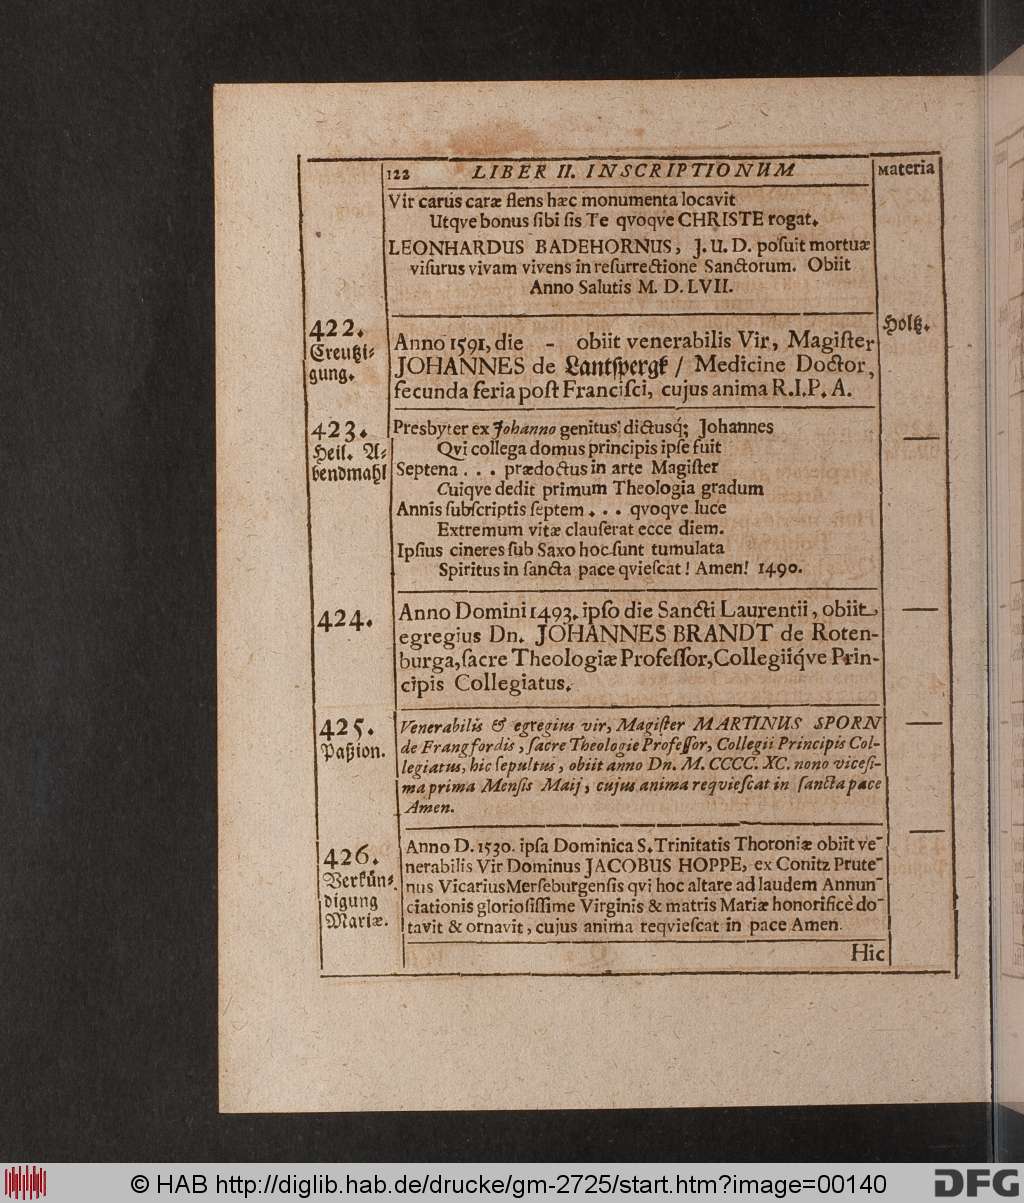 122 LIBER II. INSCRIPTIONUM Materia
Vir carus caræ flens hæc monumenta locavit
Utqve bonus ſibi ſis Te qvoqve CHRISTE rogat.
LEONHARDUS BADEHORNUS, J. U. D. poſuit mortuæ
viſurus vivam vivens in reſurrectione Sanctorum. Obiit
Anno Salutis M. D. LVII.
422.
Creutzi-
gung.
Anno 1591, die - obiit venerabilis Vir, Magiſter
JOHANNES de Lantſpergk / Medicine Doctor,
ſecunda feria poſt Franciſci, cujus anima R.I.P. A.
Holtz.
423.
Heil. A-
bendmahl
Presbyter ex Johanno genitus dictusq́; Johannes
Qvi collega domus principis ipſe fuit
Septena . . . prædoctus in arte Magiſter
Cuiqve dedit primum Theologia gradum
Annis ſubſcriptis ſeptem . . . qvoqve luce
Extremum vitæ clauſerat ecce diem.
Ipſius cineres ſub Saxo hoc ſunt tumulata
Spiritus in ſancta pace qvieſcat! Amen! 1490.
—
424.
Anno Domini 1493. ipſo die Sancti Laurentii, obiit
egregius Dn. JOHANNES BRANDT de Roten-
burga, ſacre Theologiæ Profeſſor, Collegiiq́ve Prin-
cipis Collegiatus.
—
425.
Paßion.
Venerabilis & egregius vir, Magiſter MARTINUS SPORN
de Frangfordis, ſacre Theologie Profeſſor, Collegii Principis Col-
legiatus, hic ſepultus, obiit anno Dn. M. CCCC. XC. nono viceſi-
ma prima Menſis Maij, cujus anima reqvieſcat in ſancta pace
Amen.
—
426.
Verkün-
digung
Mariæ.
Anno D. 1530. ipſa Dominica S. Trinitatis Thoroniæ obiit ve-
nerabilis Vir Dominus JACOBUS HOPPE, ex Conitz Prute-
nus Vicarius Merſeburgenſis qvi hoc altare ad laudem Annun-
ciationis glorioſiſſime Virginis & matris Mariæ honorificè do-
tavit & ornavit, cujus anima reqvieſcat in pace Amen.
—
Hic
© HAB http://diglib.hab.de/drucke/gm-2725/start.htm?image=00140
DFG